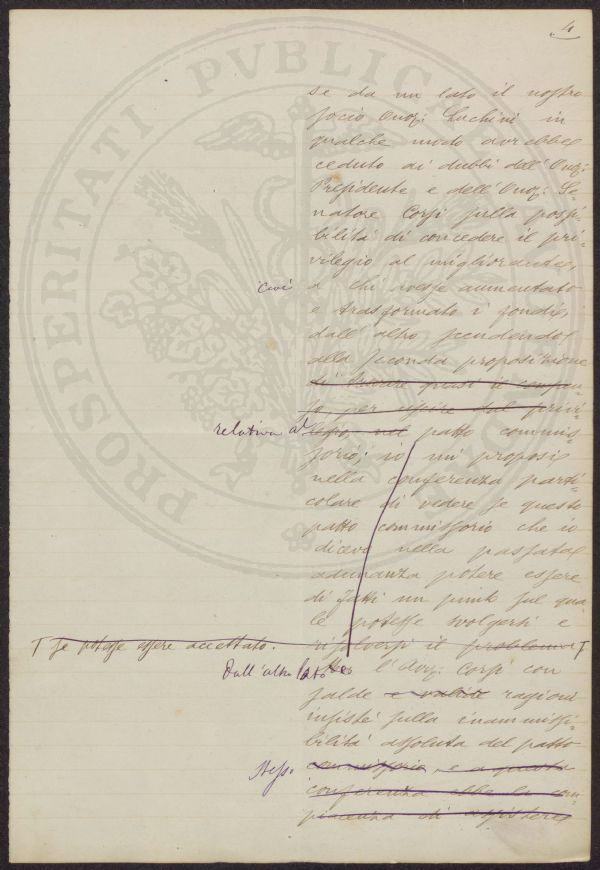 4
PROSPERITATI PVBLICAE
se da un lato il nostro
socio Onor: Luchini in
qualche modo avrebbe
ceduto ai dubbi dell'Onor:
Presidente e dell'Onor: Se=
natore Corsi sulla possi=
bilità di concedere il pri=
vilegio al migliorante,
cioè a chi avesse aumentato
e trasformato i fondi,
dall'altro scendendo
alla seconda proposizione
relativa al patto commis=
sorio; io mi proposi
nella conferenza parti=
colare di vedere se questo
patto commissorio che io
dicevo nella passata
adunanza potere essere
di fatti un punto sul qua
le potesse svolgersi e
risolversi il problema T
T se potesse essere accettato.
Dall'altro lato
l'Onor: Corsi con
salde e valide ragioni
insisté sulla inammissi=
bilità assoluta del patto
stesso commissorio, e a questa
conferenza ebbe la com=
piacenza di assistere